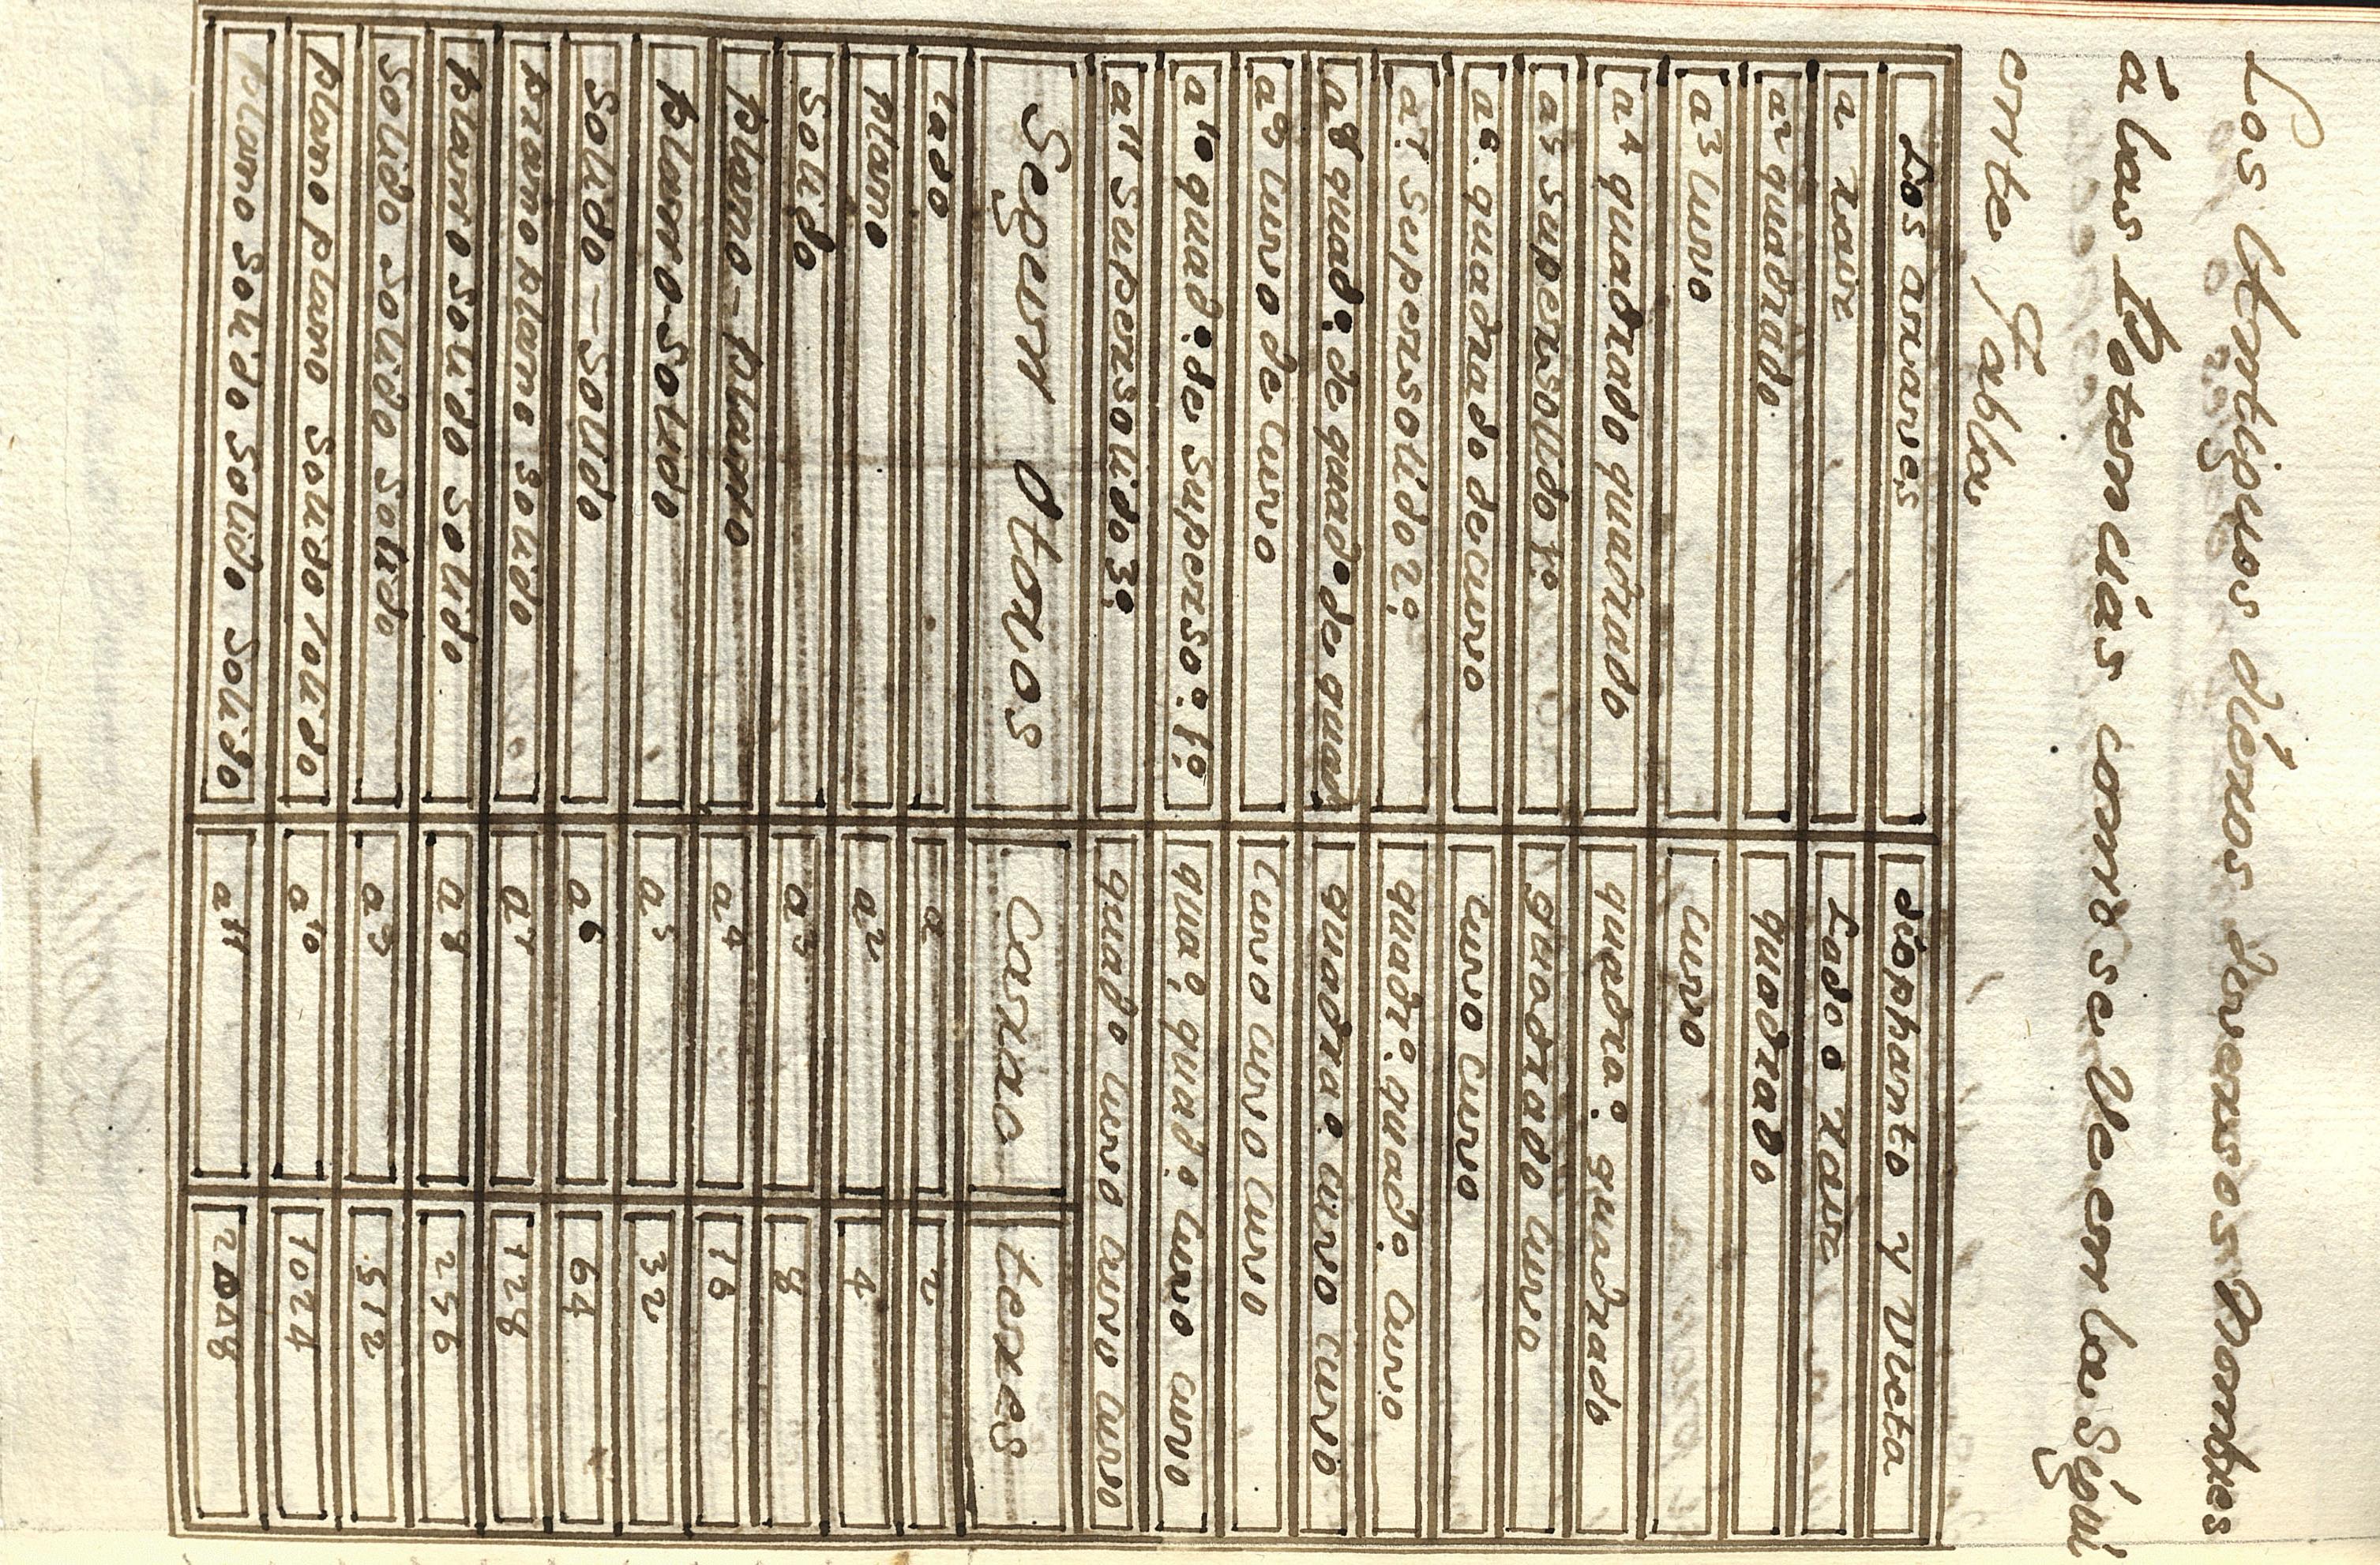 Los Antiguos dieron diversos Nombres
à las Potencias como se Ve en la Sigui
ente Tabla
Los arabes | diophanto y Vieta
a raiz | Lado o raiz
a2 quadrado | quadrado
a3 cuvo | cuvo
a4 quadrado quadrado | quadra.o quadrado
a5 supersolido 1.o | quadrado cuvo
a6. quadrado de cuvo | cuvo cuvo
a7. Supersolido 2.o | quadr.o quad.o cuvo
a8 quad.o de quad.o de quad | quadra.o cuvo cuvo
a9 cuvo de cuvo | cuvo cuvo cuvo
a10 quad.o de Superso.o 1.o | qua.o quad.o cuvo cuvo
a11 Supersolido 3.o | quad.o cuvo cuvo cuvo
Segun Otros | Carao | teres
Lado | a | 2
plano | a2 | 4
Solido | a3 | 8
plano - plano | a4 | 16
plano - solido | a5 | 32
Solido - Solido | a6 | 64
plano plano solido | a7 | 128
plano solido solido | a8 | 256
Solido Solido Solido | a9 | 512
plano plano solido solido | a10 | 1024
plano Solido Solido Solido | a11 | 2048